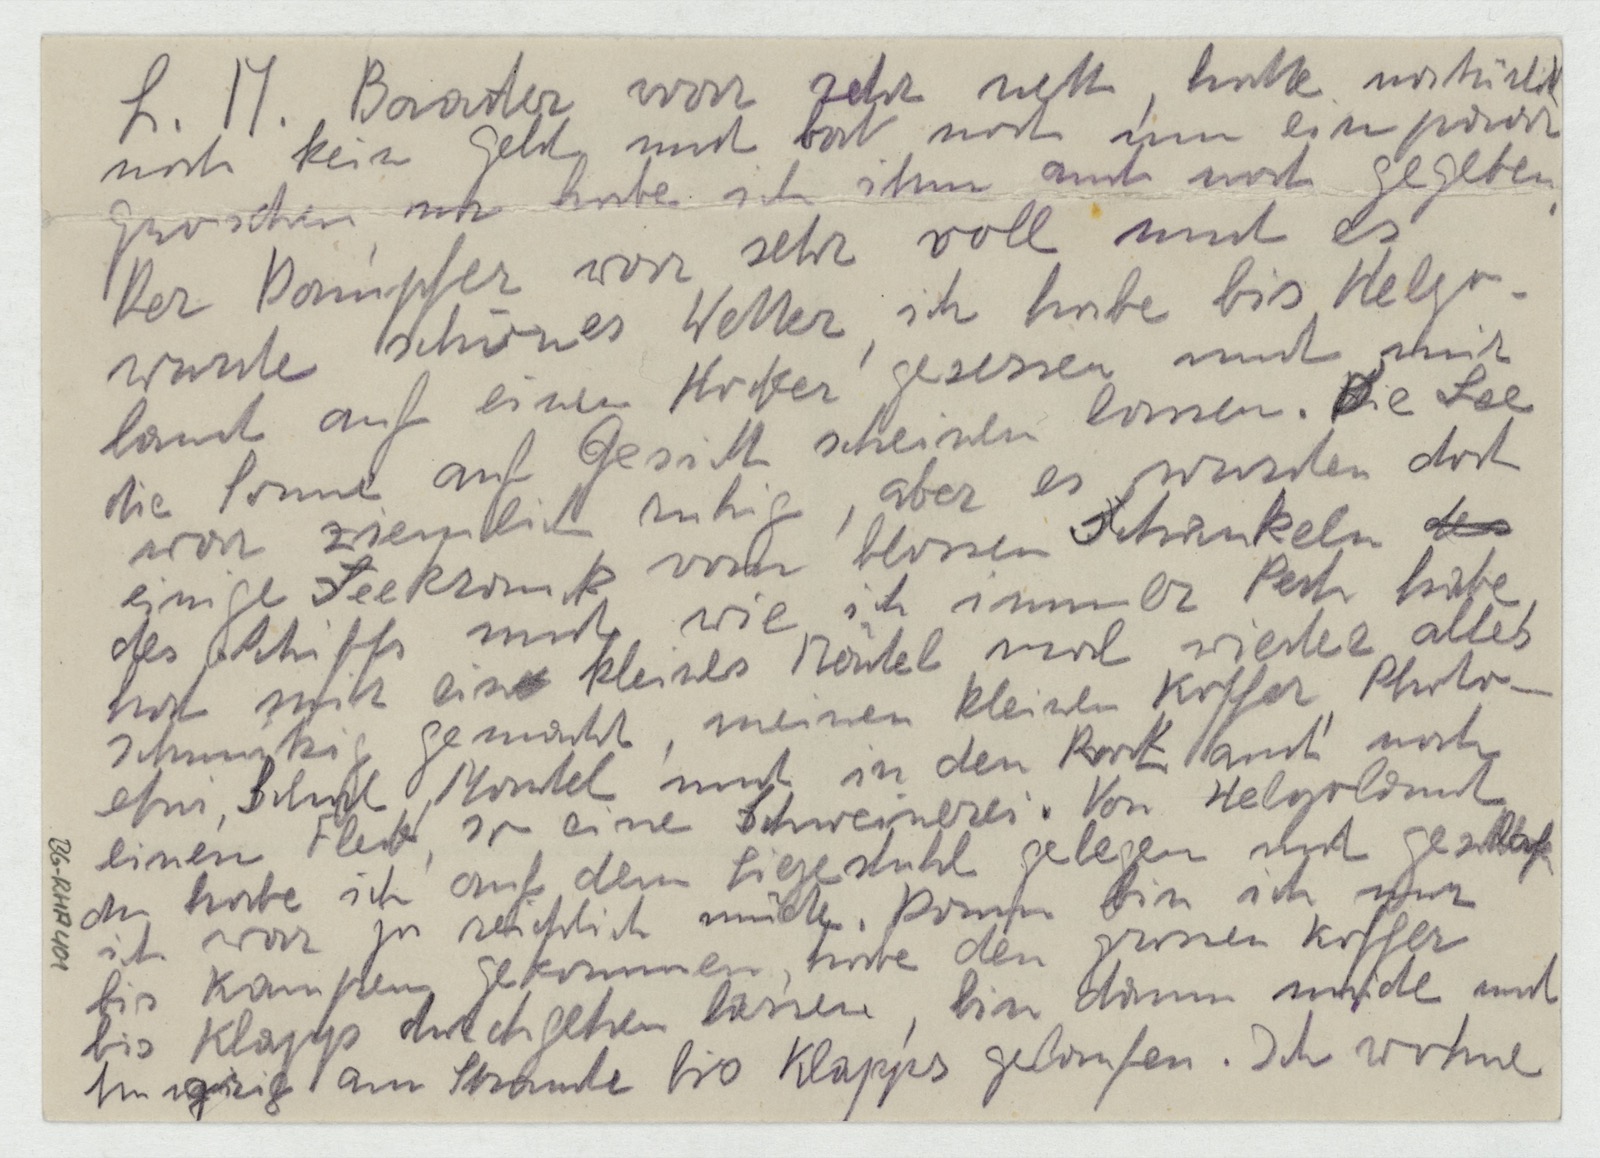 L. M. Baader war sehr nett, hatte natürlich
noch kein Geld und bat noch um ein paar
Groschen, na habe ich ihm auch noch gegeben.
Der Dampfer war sehr voll und es
wurde schönes Wetter, ich habe bis Helgo-
land auf einen Hocker gesessen und mir
die Sonne auf Gesicht scheinen lassen. Die See
war ziemlich ruhig, aber es wurden doch
einige Seekrank vom blossen Schaukeln des
des Schiffs und wie ich immer Pech habe,
hat mir ein kleines Mädel mal wieder alles
schmutzig gemacht, meinen kleinen Koffer, Photo-
etui, Schal, Mantel und in den Rock auch noch
einen Fleck, so eine Schweinerei. Von Helgoland
an habe ich auf dem Liegestuhl gelegen und geschlafen
ich war ja reichlich müde. Dann bin ich nur
bis Kampen gekommen, habe den grossen Koffer
bis Klapps durchgehen lassen, bin dann müde und
hungrig am Strande bis Klapps gelaufen. Ich wohne
BG-RHA 401